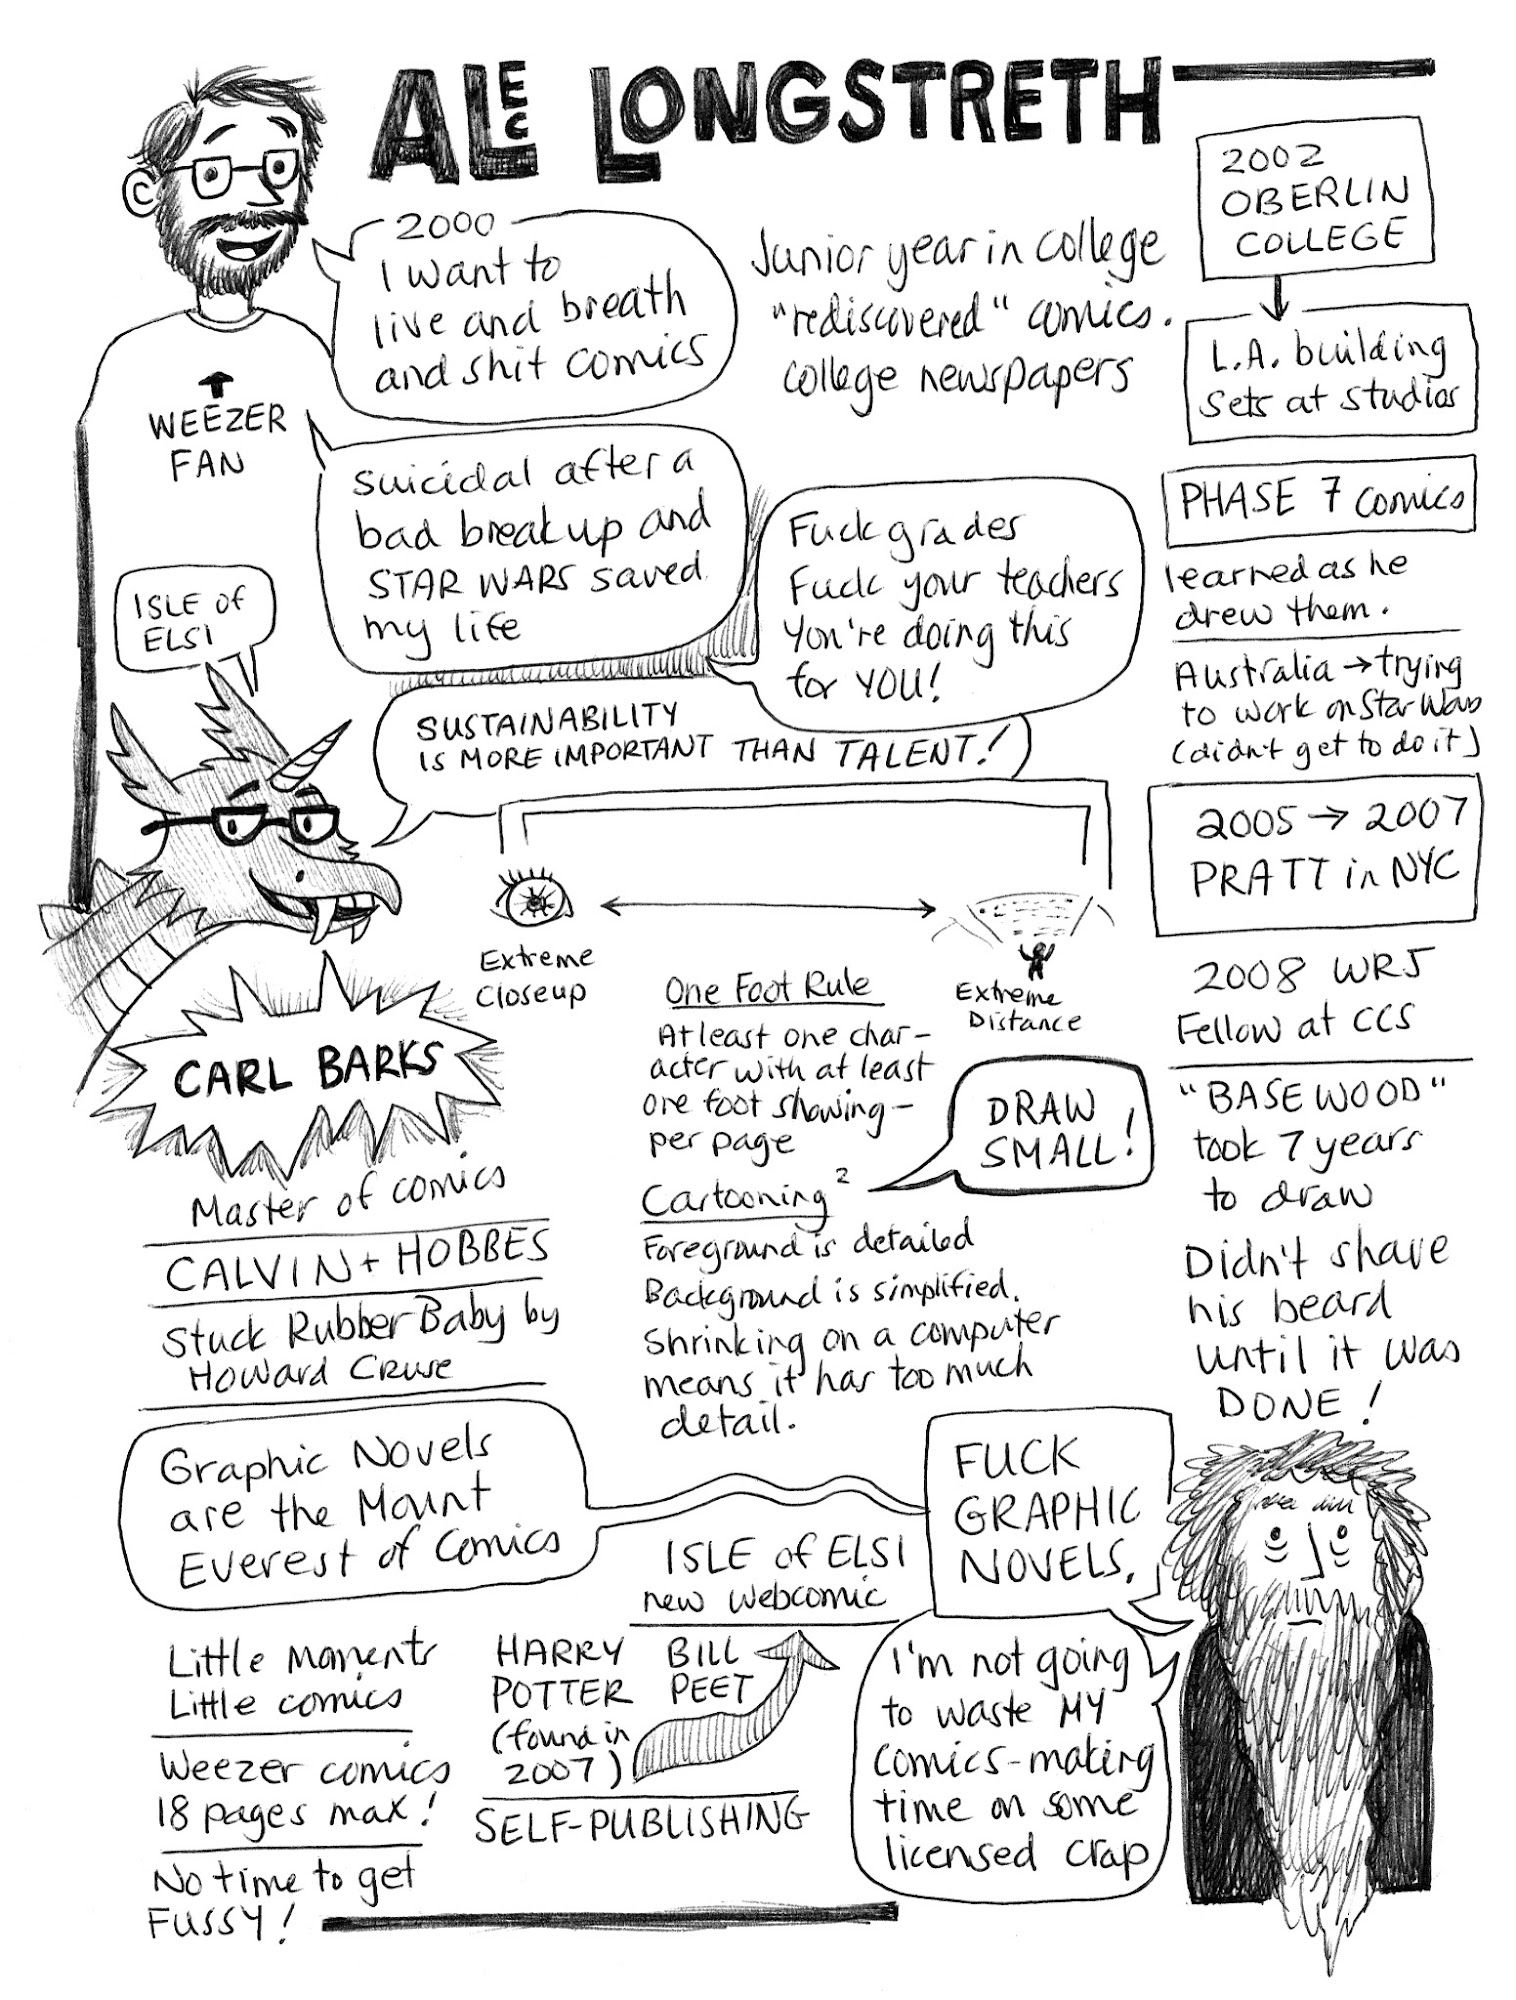 ALEC LONGSTRETH
2000
I want to
live and breath
and shit comics
Junior year in college
"rediscovered" comics.
college newspapers
2002
OBERLIN
COLLEGE
L.A. building
sets at studios
WEEZER
FAN
suicidal after a
bad breakup and
STAR WARS saved
my life
Fuck grades
Fuck your teachers
You're doing this
for YOU!
PHASE 7 comics
learned as he
drew them.
Australia → trying
to work on Star Wars
(didn't get to do it)
ISLE of
ELSI
SUSTAINABILITY
IS MORE IMPORTANT THAN TALENT!
2005 → 2007
PRATT in NYC
Extreme
Closeup
Extreme
Distance
2008 WRJ
Fellow at CCS
One Foot Rule
At least one char-
acter with at least
one foot showing-
per page
CARL BARKS
Master of comics
CALVIN + HOBBES
Stuck Rubber Baby by
Howard Cruse
DRAW
SMALL!
Cartooning²
Foreground is detailed
Background is simplified.
Shrinking on a computer
means it has too much
detail.
"BASEWOOD"
took 7 years
to draw
Didn't shave
his beard
until it was
DONE!
Graphic Novels
are the Mount
Everest of Comics
FUCK
GRAPHIC
NOVELS.
ISLE of ELSI
new webcomic
Little moments
Little comics
Weezer comics
18 pages max!
No time to get
FUSSY!
HARRY
POTTER
(found in
2007)
BILL
PEET
SELF-PUBLISHING
I'm not going
to waste MY
comics-making
time on some
licensed crap